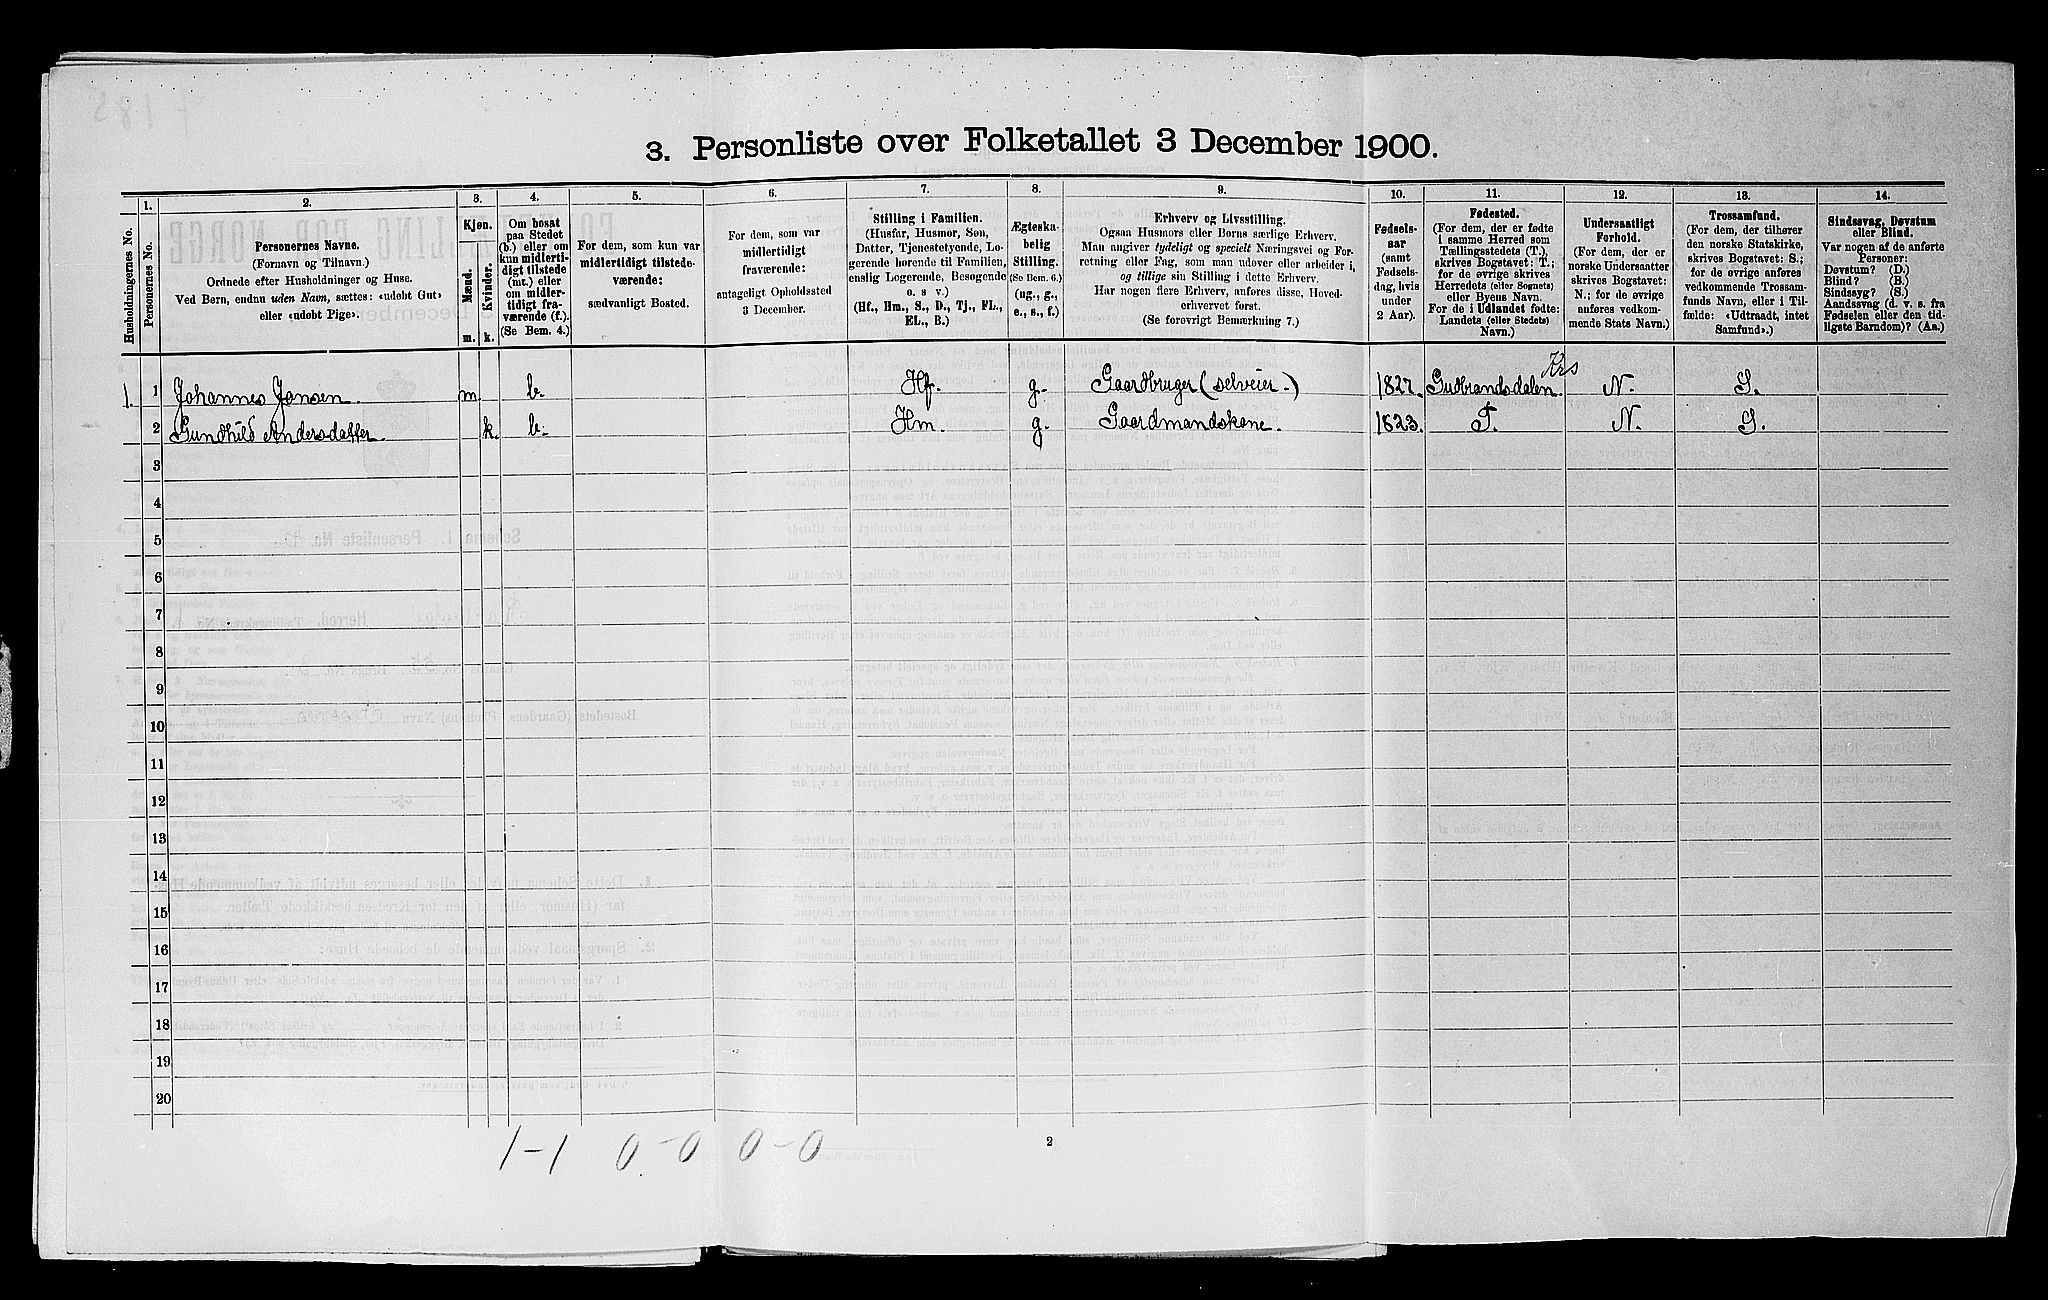 3. Personliste over Folketallet 3 December 1900.
1. 2. 3. 4. 5. 6. 7. 8. 9. 10. 11. 12. 13. 14.
Husholdningernes No.
Personernes No.
Personernes Navne.
(Fornavn og Tilnavn.)
Ordnede efter Husholdninger og Huse.
Ved Børn, endnu uden Navn, sættes: «udøbt Gut»
eller «udøbt Pige».
Kjøn.
Mænd.
Kvinder.
m. k.
Om bosat
paa Stedet
(b.) eller om
kun midlerti-
digt tilstede
(mt.) eller
om midler-
tidigt fra-
værende (f.).
(Se Bem. 4.)
For dem, som kun var
midlertidigt tilstede-
værende:
sædvanligt Bosted.
For dem, som var
midlertidigt
fraværende:
antageligt Opholdssted
3 December.
Stilling i Familien.
(Husfar, Husmor, Søn,
Datter, Tjenestetyende, Lo-
gerende hørende til Familien,
enslig Logerende, Besøgende
o. s v.)
(Hf., Hm., S., D., Tj., FL.,
EL., B.)
Ægteska-
belig
Stilling.
(Se Bem. 6.)
(ug., g.,
e., s., f.)
Erhverv og Livsstilling.
Ogsaa Husmors eller Børns særlige Erhverv.
Man angiver tydeligt og specielt Næringsvei og For-
retning eller Fag, som man udøver eller arbeider i,
og tillige sin Stilling i dette Erhverv.
Har nogen flere Erhverv, anføres disse, Hoved-
erhvervet først.
(Se forøvrigt Bemærkning 7.)
Fødsels-
aar
(samt
Fødsels-
dag, hvis
under
2 Aar).
Fødested.
(For dem, der er fødte
i samme Herred som
Tællingsstedets (T.),
skrives Bogstavet: T.;
for de øvrige skrives
Herredets (eller Sognets)
eller Byens Navn.
For de i Udlandet fødte:
Landets (eller Stedets)
Navn.)
Undersaatligt
Forhold.
(For dem, der er
norske Undersaatter
skrives Bogstavet:
N.; for de øvrige
anføres vedkom-
mende Stats Navn.)
Trossamfund.
(For dem, der tilhører
den norske Statskirke,
skrives Bogstavet: S.;
for de øvrige anføres
vedkommende Trossam-
funds Navn, eller i Til-
fælde: «Udtraadt, intet
Samfund».)
Sindssvag, Døvstum
eller Blind.
Var nogen af de anførte
Personer:
Døvstum? (D.)
Blind? (B.)
Sindssyg? (S.)
Aandssvag (d. v. s. fra
Fødselen eller den tid-
ligste Barndom)? (Aa.)
1. 1 Johannes Jansen. m. b. Hf. g. Gaardbruger (selveier.) 1827. Gudbrandsdalen. Krs N. S.
2 Gundhild Andersdatter k. b. Hm. g. Gaardmandskone. 1823. T. N. S.
3
4
5
6
7
8
9
10
11
12
13
14
15
16
17
18
19
20
1-1 0-0 0-0
2